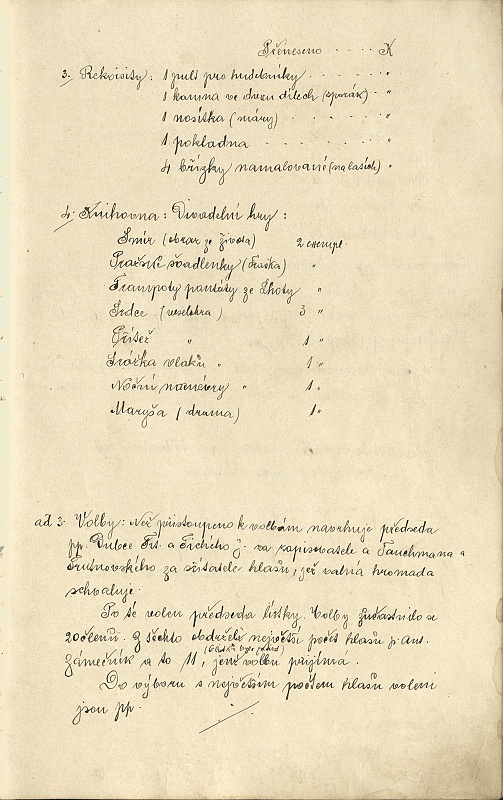 Přeneseno · · · · · K
3. Rekvisity: 1 pult pro hudebníky · · · · · "
1 kamna ve dvou dílech (sporák) · "
1 nosítka (máry) · · · · · "
1 pokladna · · · · · "
4 břízky namalované (na latích) "
4. Knihovna: Divadelní hry:
Smír (obraz ze života) 2 exempl.
Pražské švadlenky (fraška) "
Trampoty pantáty ze Lhoty "
Srdce (veselohra) 3 "
Příšeř " 1 "
Srážka vlaků " 1 "
Noční manévry " 1 "
Maryša (drama) 1 "
ad 3. Volby: Než přistoupeno k volbám navrhuje předseda
pp. Dubce Frt. a Tichého J. za zapisovatele a Tauchmana a
Trutnovského za sčitatele hlasů, jež valná hromada
schvaluje.
Po té volen předseda lístky. Volby zúčastnilo se
20 členů. Z těchto obdržel největší počet hlasů p. Ant.
Zámečník a to 11, jenž volbu přijímá.
Do výboru s největším počtem hlasů voleni
jsou pp.